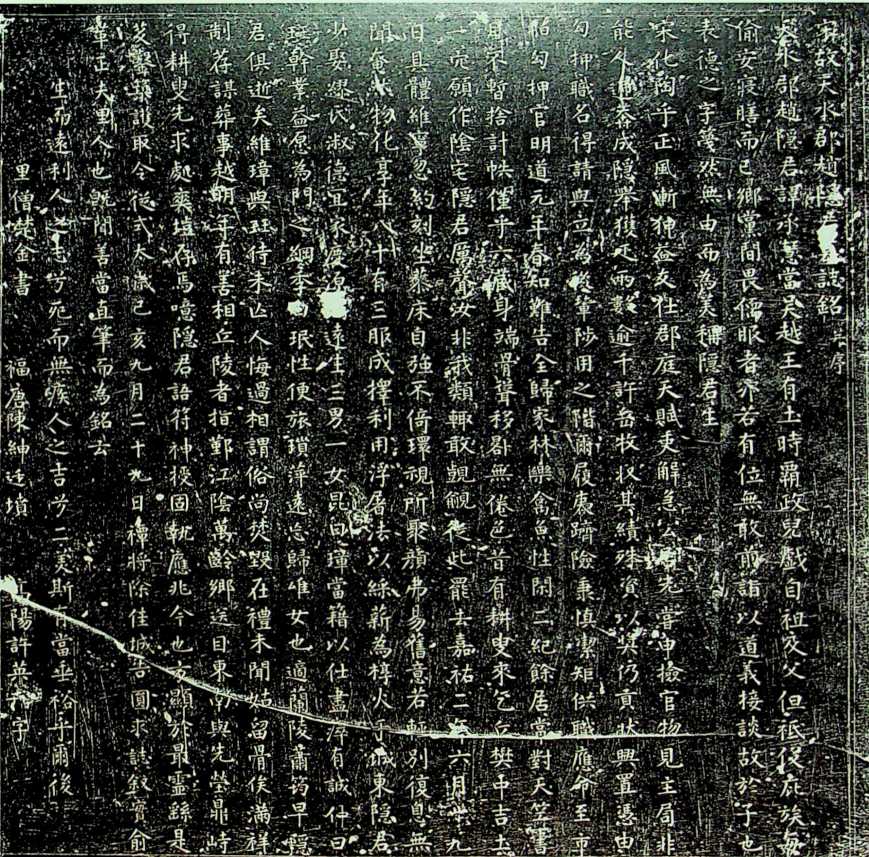 宋故天水郡趙隱君墓誌銘并序
天水郡趙隱君諱承 當吳越王有土時霸政兒戲自祖及父但祗役庇族每
偷安寢膳而已鄉黨間畏儒服者介若有位無敢前詣以道義接談故於子也
表德之字篾然無由而為美稱隱君生
宋化陶乎正風漸狎益友仕郡庭天賦吏解急公 先嘗申撿官物見主局非
能久 成隱舉獲疋兩數逾千許岳牧狀其績殊資以獎仍貢狀興置憑由
勾押職名得請與立為後輩陟用之階爾履處躋險秉慎潔矩供職應命至市
舶勾押官明道元年春知難告全歸家林樂禽魚性閑二紀餘居常對天竺書
非冗暫捨計帙僅乎六藏身端骨聳移晷無倦色昔有耕叟來乞丘樊中吉土
一 願作陰宅隱君厲聲汝非我類輒敢覬覦從此罷去嘉祐二年六月廿九
日具體維寧忽約刻坐 床自強不倚環視所聚顏弗易舊意若暫別復息無
聞奄 物化享年八十有三服成擇利用浮屠法以綵薪為椁火于城東隱君
少娶繆氏淑德宜家 遠生三男一女昆曰璋當籍以仕盡瘁有誠仲曰
珽幹業益愿為門之綱季曰珉性便旅瑣萍遠忘歸唯女也適蘭陵蕭 早 
君俱逝矣維璋與珽待未亡人悔過相謂俗尚焚毀在禮未聞姑留骨俟滿祥
制荐謀葬事越明年有善相丘陵者指鄞江陰萬齡鄉迄目東南與先塋鼎峙
得耕叟先求 爽塏存焉噫隱君語符神授固執應兆今也方顯於最靈繇是
芟 築護取今從式太歲己亥九月二十九日禫將除佳城告圓求誌銘實俞
華正夫里人也既聞善當直筆而為銘云
生而遠利人之 兮死而無 人之吉兮二美斯 當垂裕乎爾後
里僧楚金書 福唐陳紳迁墳 陽許英 字